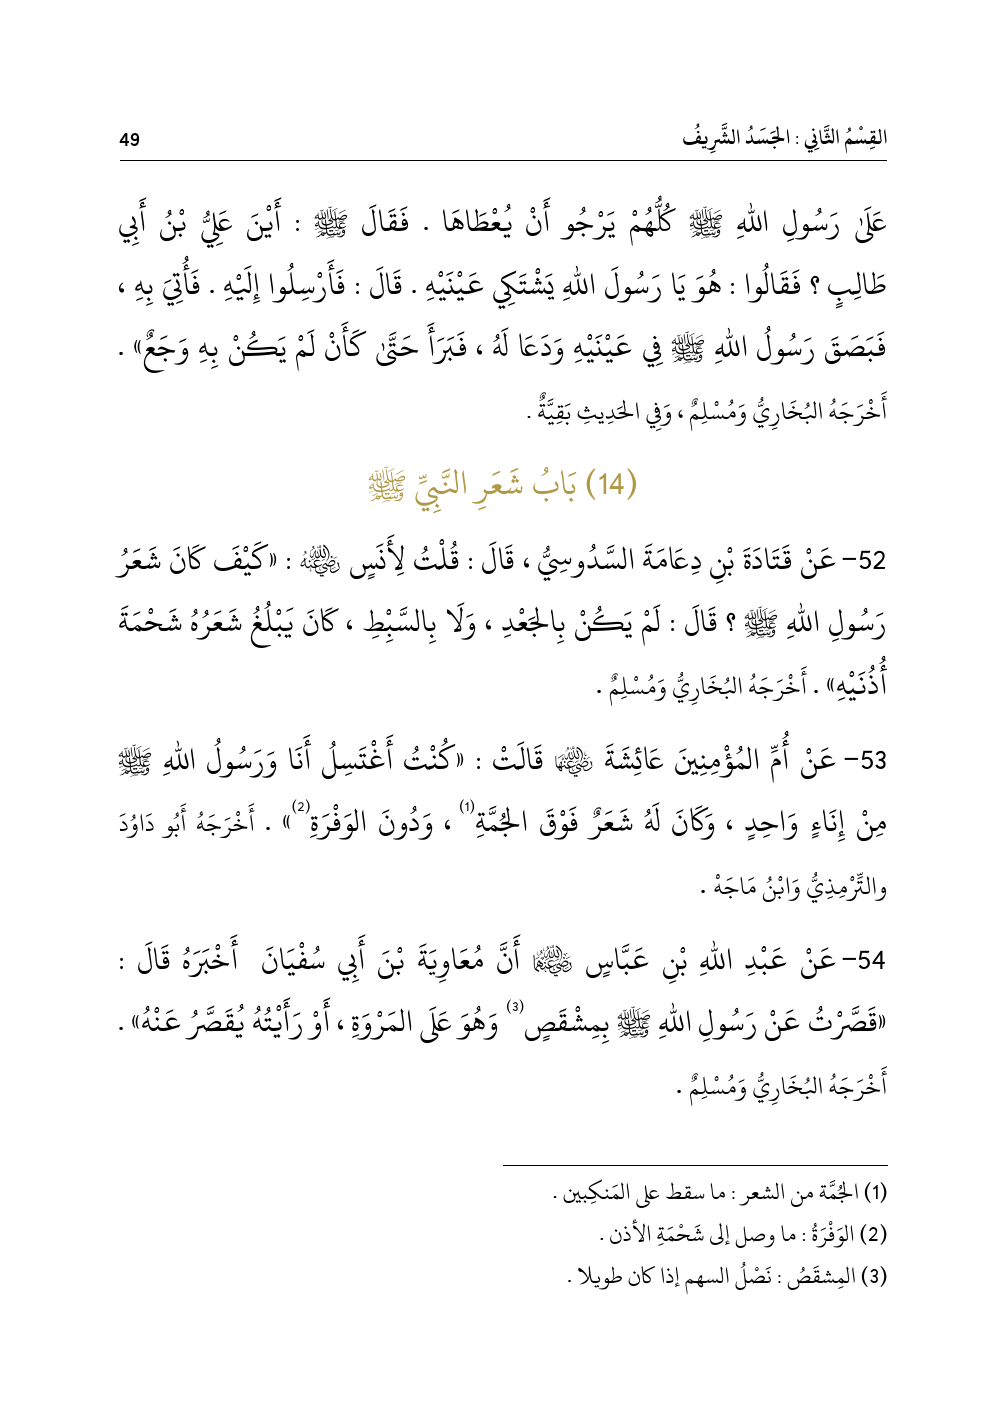 القِسْمُ الثَّانِي : الجَسَدُ الشَّرِيفُ 49
عَلَىٰ رَسُولِ اللهِ ﷺ كُلُّهُمْ يَرْجُو أَنْ يُعْطَاهَا . فَقَالَ ﷺ : أَيْنَ عَلِيُّ بْنُ أَبِي
طَالِبٍ ؟ فَقَالُوا : هُوَ يَا رَسُولَ اللهِ يَشْتَكِي عَيْنَيْهِ . قَالَ : فَأَرْسِلُوا إِلَيْهِ . فَأُتِيَ بِهِ ،
فَبَصَقَ رَسُولُ اللهِ ﷺ فِي عَيْنَيْهِ وَدَعَا لَهُ ، فَبَرَأَ حَتَّىٰ كَأَنْ لَمْ يَكُنْ بِهِ وَجَعٌ» .
أَخْرَجَهُ البُخَارِيُّ وَمُسْلِمٌ ، وَفِي الحَدِيثِ بَقِيَّةٌ .
(14) بَابُ شَعَرِ النَّبِيِّ ﷺ
52– عَنْ قَتَادَةَ بْنِ دِعَامَةَ السَّدُوسِيُّ ، قَالَ : قُلْتُ لِأَنَسٍ رضي الله عنه : «كَيْفَ كَانَ شَعَرُ
رَسُولِ اللهِ ﷺ ؟ قَالَ : لَمْ يَكُنْ بِالجَعْدِ ، وَلَا بِالسَّبْطِ ، كَانَ يَبْلُغُ شَعَرُهُ شَحْمَةَ
أُذُنَيْهِ» . أَخْرَجَهُ البُخَارِيُّ وَمُسْلِمٌ .
53– عَنْ أُمِّ المُؤْمِنِينَ عَائِشَةَ رضي الله عنها قَالَتْ : «كُنْتُ أَغْتَسِلُ أَنَا وَرَسُولُ اللهِ ﷺ
مِنْ إِنَاءٍ وَاحِدٍ ، وَكَانَ لَهُ شَعَرٌ فَوْقَ الجُمَّةِ(1) ، وَدُونَ الوَفْرَةِ(2)» . أَخْرَجَهُ أَبُو دَاوُدَ
والتِّرْمِذِيُّ وَابْنُ مَاجَهْ .
54– عَنْ عَبْدِ اللهِ بْنِ عَبَّاسٍ رضي الله عنهما أَنَّ مُعَاوِيَةَ بْنَ أَبِي سُفْيَانَ أَخْبَرَهُ قَالَ :
«قَصَّرْتُ عَنْ رَسُولِ اللهِ ﷺ بِمِشْقَصٍ(3) وَهُوَ عَلَى المَرْوَةِ ، أَوْ رَأَيْتُهُ يُقَصَّرُ عَنْهُ» .
أَخْرَجَهُ البُخَارِيُّ وَمُسْلِمٌ .
(1) الجُمَّة من الشعر : ما سقط على المَنكِبين .
(2) الوَفْرَةُ : ما وصل إلى شَحْمَةِ الأذن .
(3) المِشقَصُ : نَصْلُ السهم إذا كان طويلا .